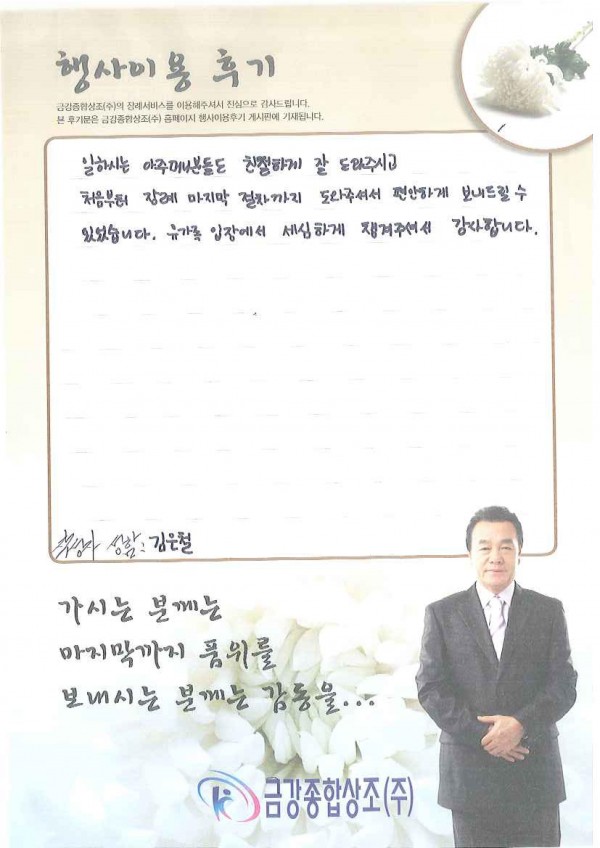 행사이용 후기
금강종합상조(주)의 장례서비스를 이용해주셔서 진심으로 감사드립니다.
본 후기문은 금강종합상조(주) 홈페이지 행사이용후기 게시판에 기재됩니다.
일하시는 아주머니분들도 친절하게 잘 도와주시고
처음부터 장례 마지막 절차까지 도와주셔서 편안하게 보내드릴 수
있었습니다. 유가족 입장에서 세심하게 챙겨주셔서 감사합니다.
작성자 성함: 김은철
가시는 분께는
마지막까지 품위를
보내시는 분께는 감동을...
금강종합상조(주)